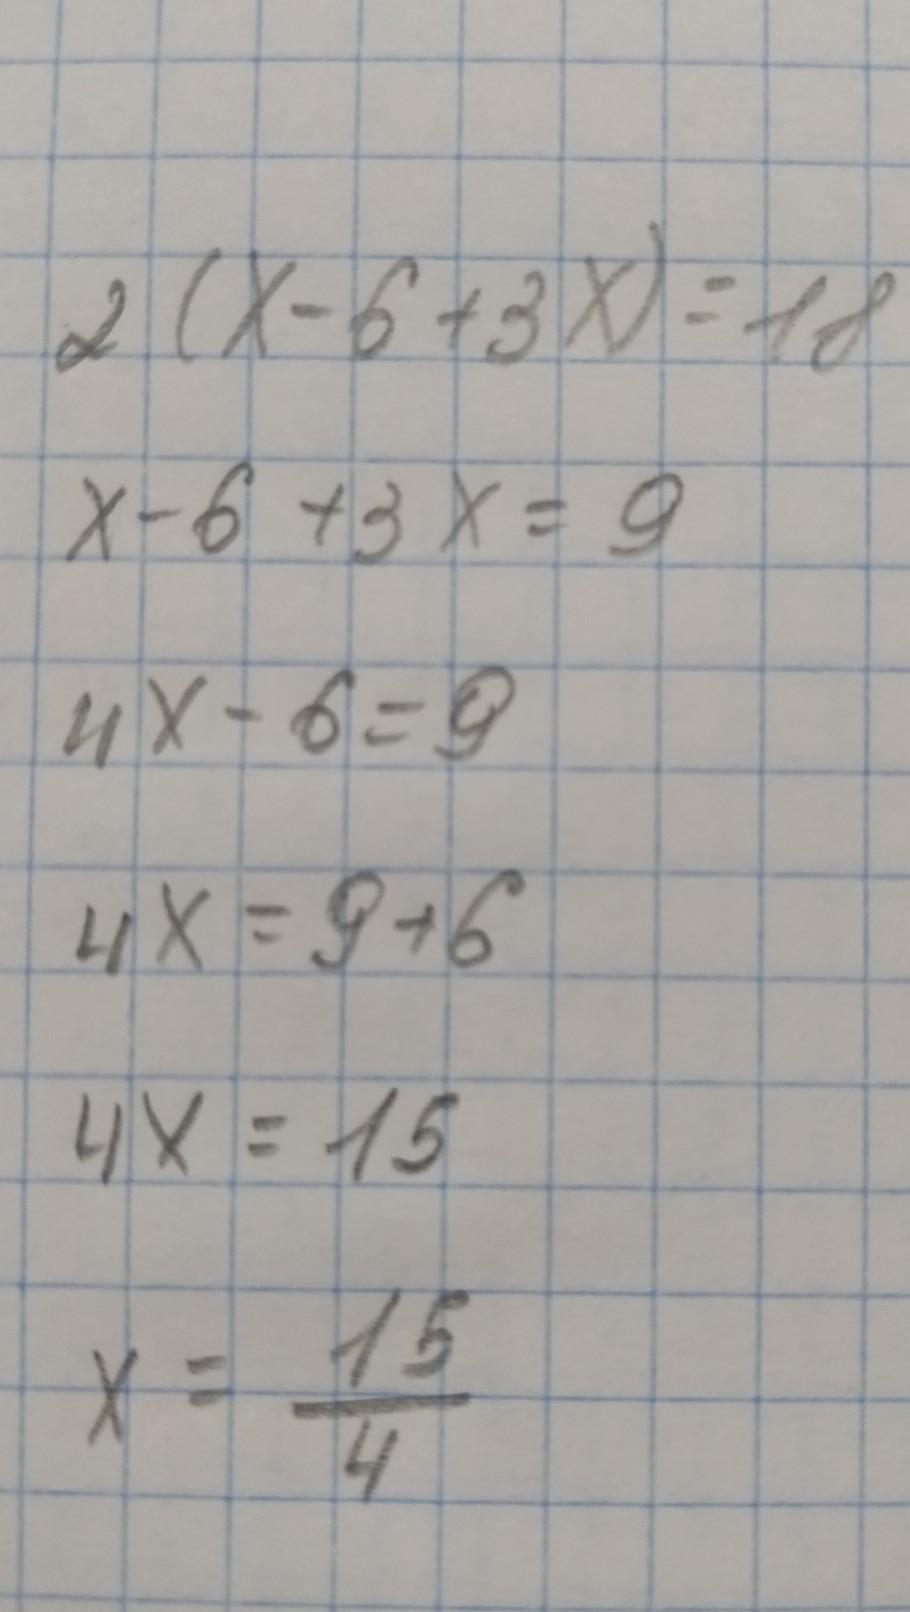 2(x-6+3x)=18
x-6+3x=9
4x-6=9
4x=9+6
4x=15
x=15/4